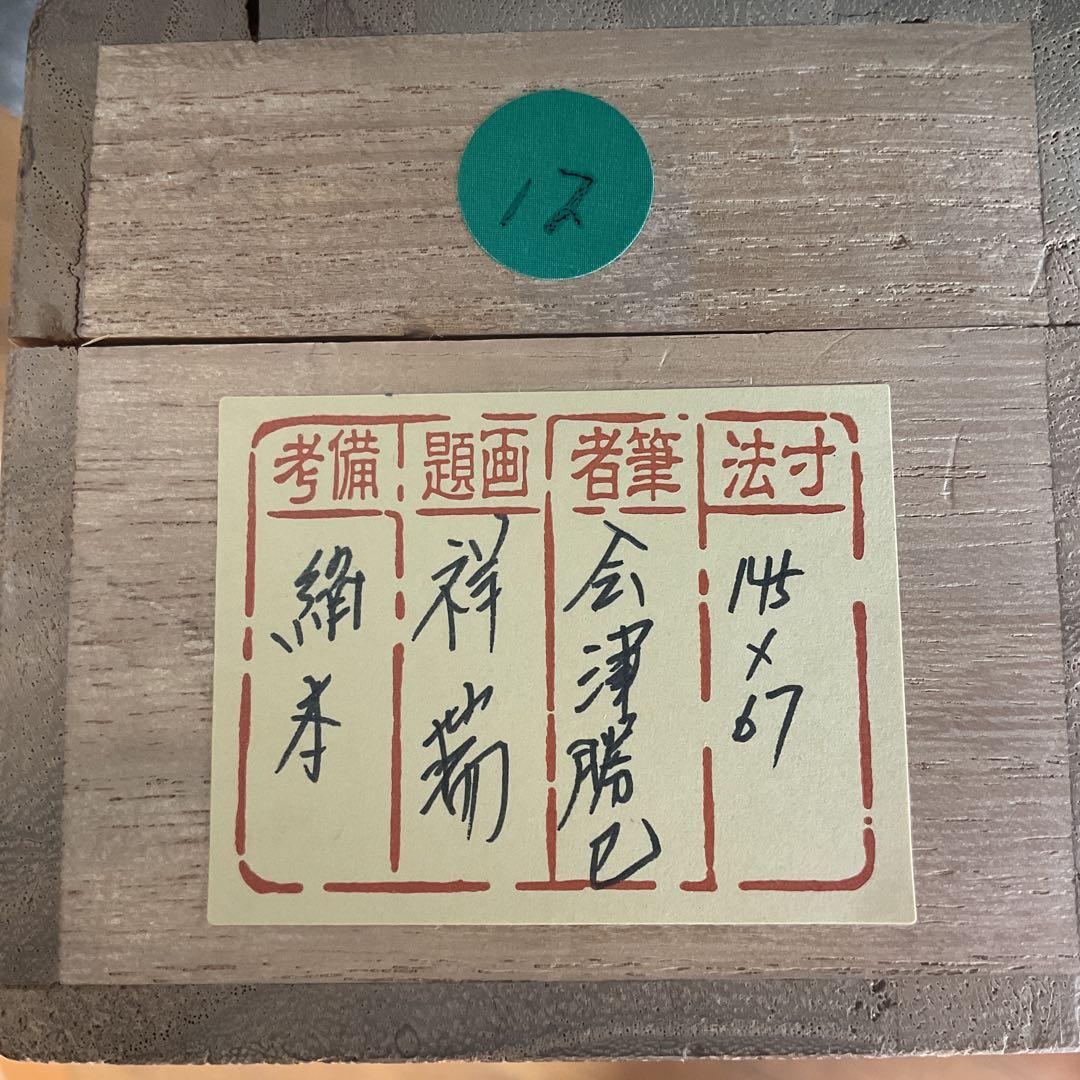 12
寸法
145×67
筆者
会津勝巳
画題
祥瑞
備考
絹本